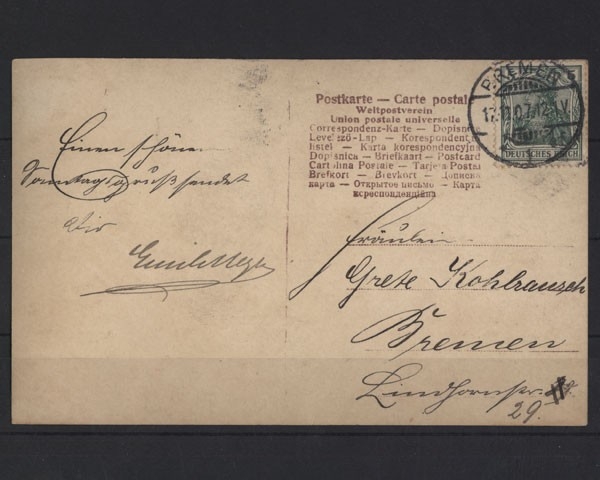 Postkarte — Carte postale
Weltpostverein
Union postale universelle
Correspondenz-Karte — Dopisnice
Levelező-Lap — Korespondenční
lístek — Karta korespondencyjna
Dopisnica — Briefkaart — Postcard
Cartolina Postale — Tarjeta Postal
Brefkort — Brevkort — Дописна
карта — Открытое письмо — Карта
кореспонденційна
BREMEN 5
17.11.07.12-1V.
DEUTSCHES REICH
Einen schönen
Sonntagsgruß sendet
dir
Fräulein
Grete Kohlrausch
Bremen
Lindhornstr.
29.